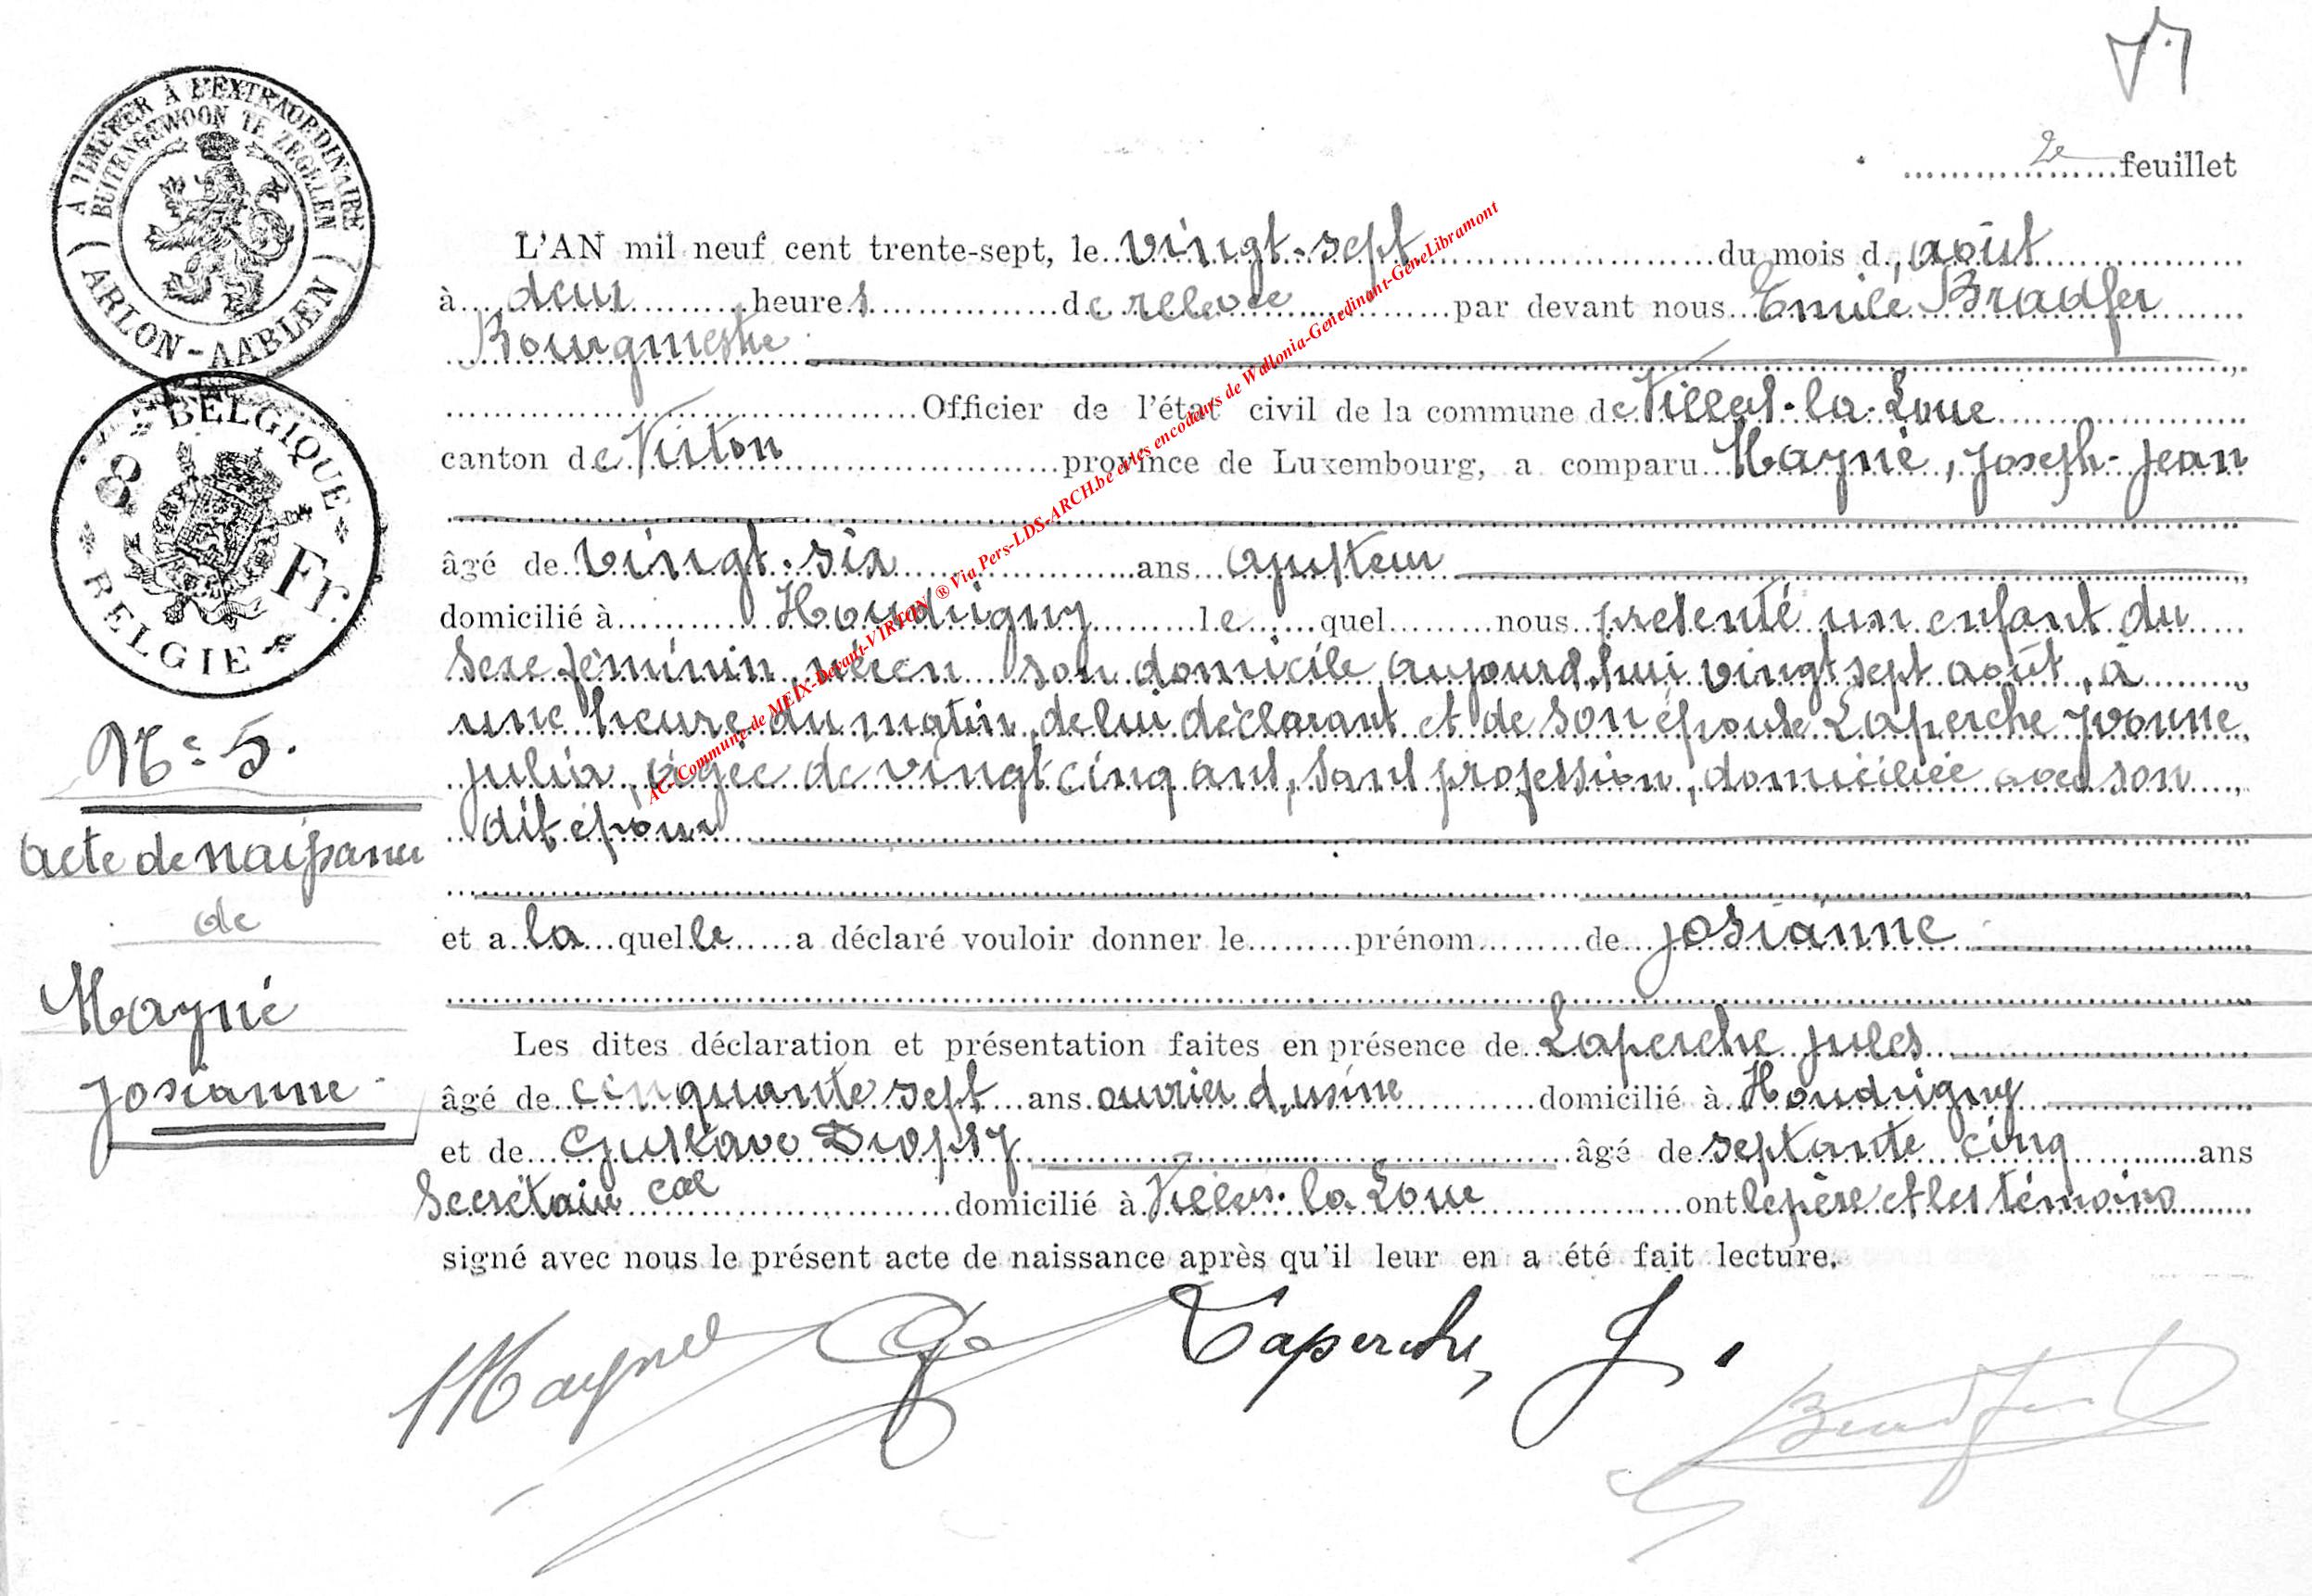 2e feuillet
A TIMBRER À L'EXTRAORDINAIRE
BUITENGEWOON TE ZEGELEN
ARLON - AARLEN
BELGIQUE
8 Fr.
BELGIE
L'AN mil neuf cent trente-sept, le vingt-sept du mois d, août
à deux heures de relevée par devant nous Emile Bradfer
Bourgmestre
Officier de l'état civil de la commune de Villers-la-Loue
canton de Virton province de Luxembourg, a comparu Mayné, Joseph-Jean
âgé de vingt-six ans ajusteur
domicilié à Houdrigny le quel nous présenté un enfant du
sexe féminin, née en son domicile aujourd'hui vingt sept août, à
une heure du matin, de lui déclarant et de son épouse Laperche Yvonne
Julia, âgée de vingt cinq ans, sans profession, domiciliée avec son
dit époux
et a la quelle a déclaré vouloir donner le prénom de Josianne
Les dites déclaration et présentation faites en présence de Laperche Jules
âgé de cinquante sept ans ouvrier d'usine domicilié à Houdrigny
et de Gustave Dropsy âgé de septante cinq ans
Secrétaire cal domicilié à Villers-la-Loue ont le père et les témoins
signé avec nous le présent acte de naissance après qu'il leur en a été fait lecture.
N° 5.
Acte de naissance
de
Mayné
Josianne
Mayné
Laperche, J.
Bradfer
AC-Commune de MEIX-Devant-VIRTON ® Via Pers-LDS-ARCH.be et les encodeurs de Wallonia-Genedinant-GeneLibramont